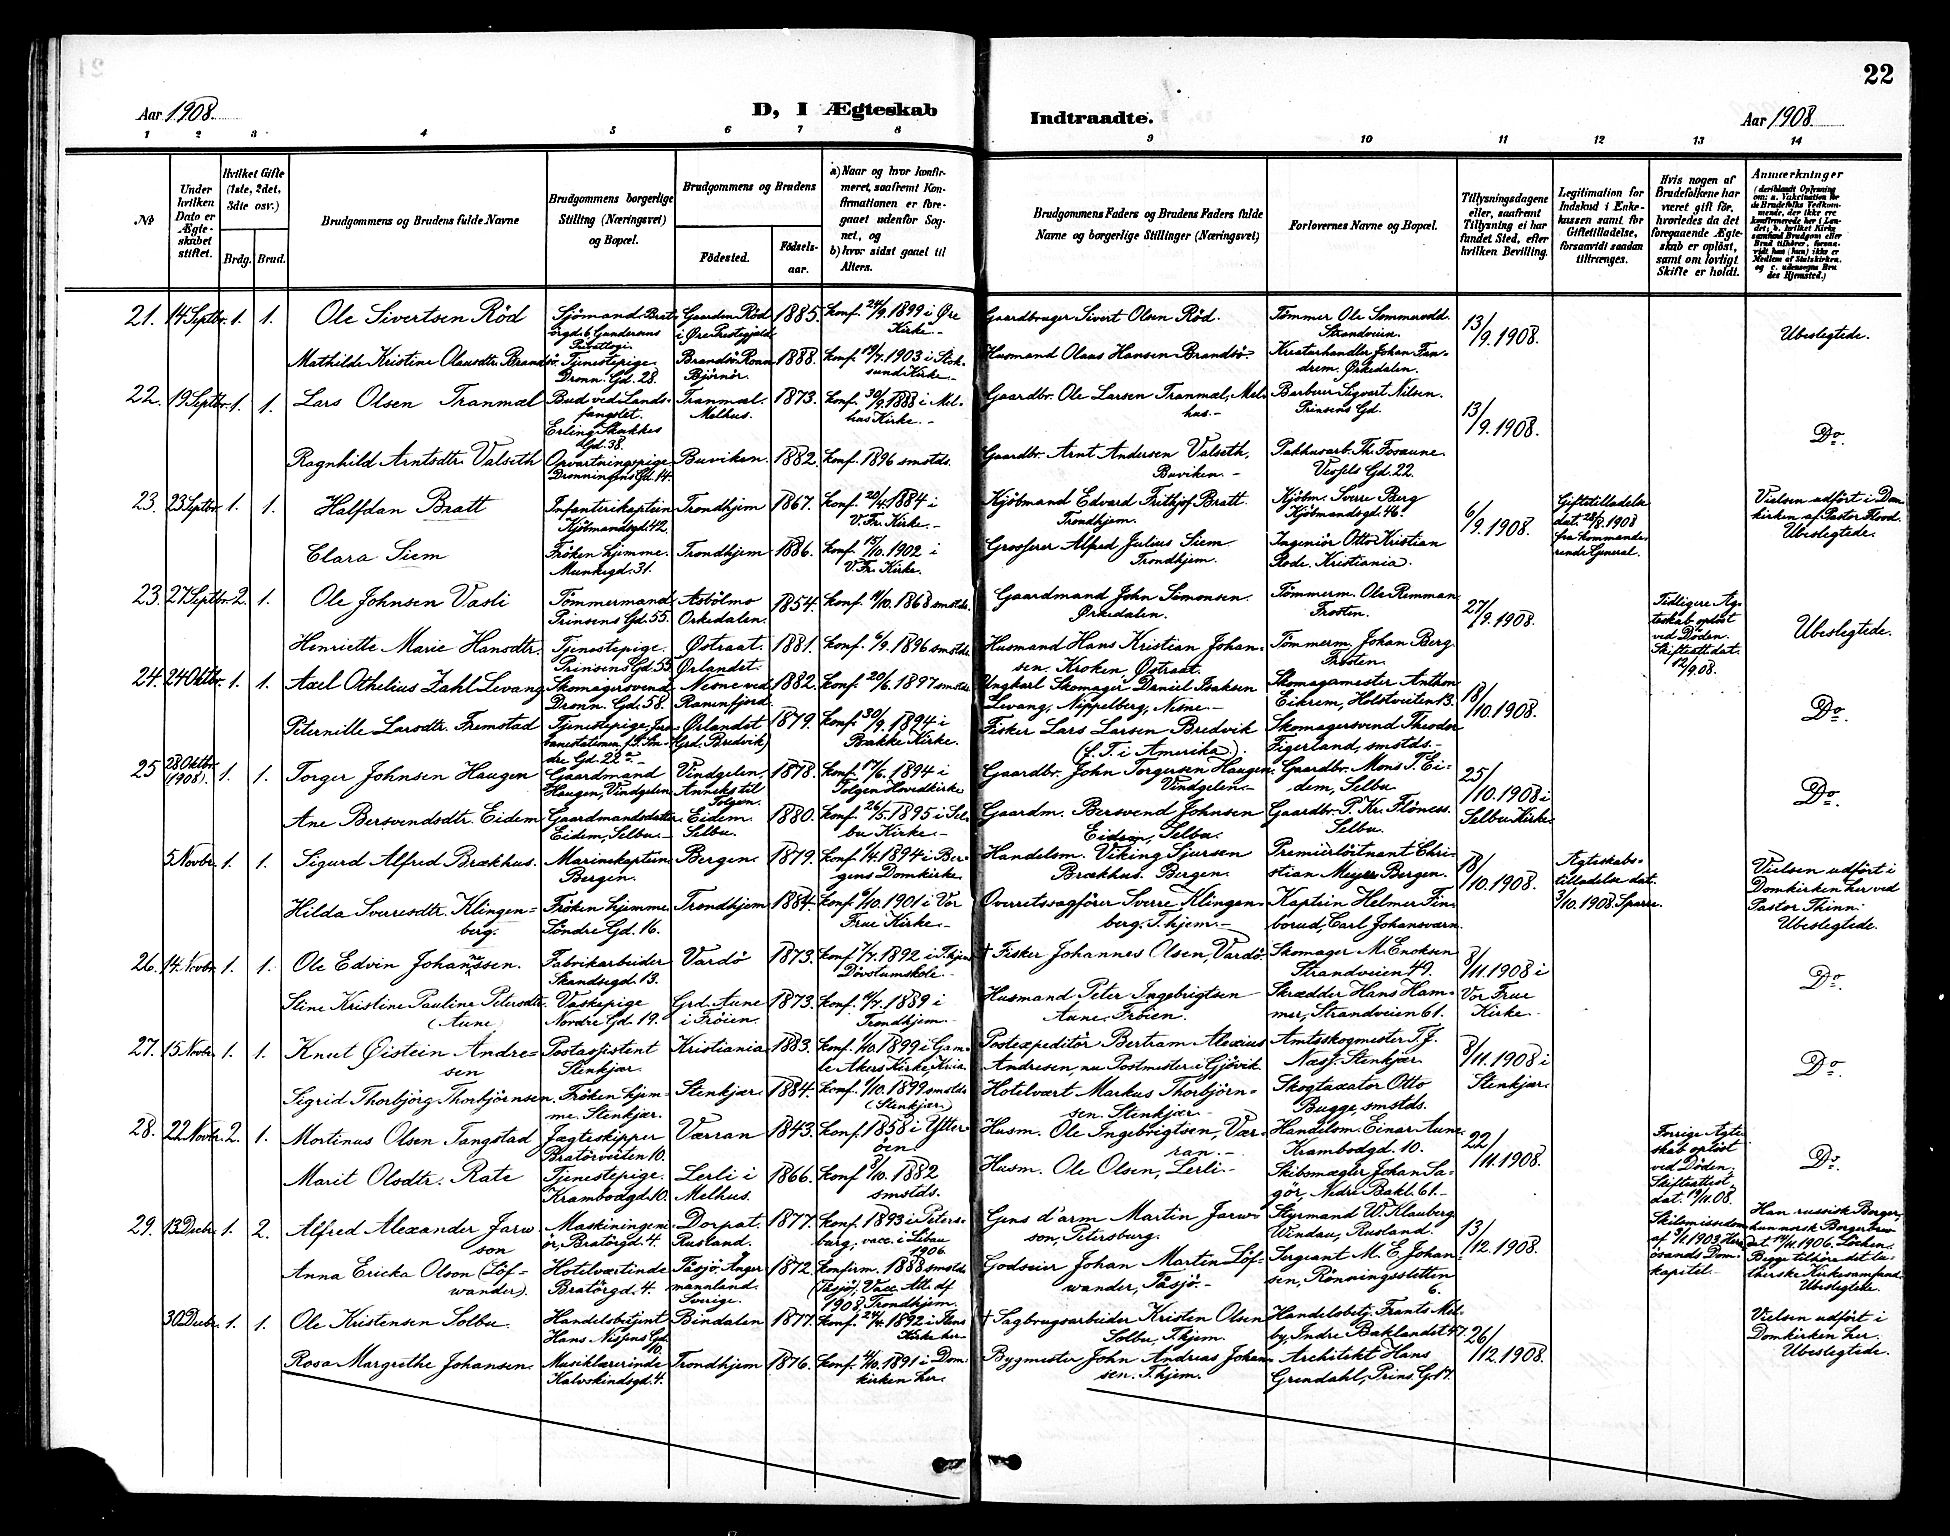 22
Aar 1908.
D, I Ægteskab
Indtraadte.
Aar 1908
1 2 3 4 5 6 7 8 9 10 11 12 13 14
No
Under hvilken Dato er Ægteskabet stiftet.
Hvilket Gifte (1ste, 2det, 3die osv.)
Brdg. Brud.
Brudgommens og Brudens fulde Navne
Brudgommens borgerlige Stilling (Næringsvei) og Bopæl.
Brudgommens og Brudens
Födested.
Födselsaar.
a) Naar og hvor konfirmeret, saafremt Konfirmationen er foregaaet udenfor Sognet, og
b) hvor sidst gaaet til Alters.
Brudgommens Faders og Brudens Faders fulde Navne og borgerlige Stillinger (Næringsvei)
Forlovernes Navne og Bopæl.
Tillysningsdagene eller, saafremt Tillysning ei har fundet Sted, efter hvilken Bevilling.
Legitimation for Indskud i Enkekassen samt for Giftetilladelse, forsaavidt saadan tiltrænges.
Hvis nogen af Brudefolkene har været gift för, hvorledes da det foregaaende Ægteskab er oplöst, samt om lovligt Skifte er holdt.
Anmærkninger
21. 14 Septbr. 1. 1. Ole Sivertsen Röd Sjömand Bratörgd. 6 Gundersens Privatlogi. Gaarden Röd i Øre Prestegjeld 1885. Konf. 24/9. 1899 i Øre Kirke.- Gaardbruger Sivert Olsen Röd. Tömmer Ole Sommervold. Strandveien. 13/9. 1908. Ubeslegtede.
Mathilde Kristine Olausdtr. Brandsö. Tjenestepige. Dronn. Gd. 28. Brandsö Roan Björnör. 1888. Konf. 19/7. 1903 i Stoksund Kirke.- Husmand Olaus Hansen Brandsö- Kreaturhandler Johan Fandrem. Ørkedalen.
22. 19 Septbr. 1. 1. Lars Olsen Tranmæl Bud ved Landsfængslet. Erling Skakkes Gd. 38. Tranmæl. Melhus. 1873. Konf. 30/9. 1888 i Melhus Kirke.- Gaardbr. Ole Larsen Tranmæl, Melhus.- Barberer Sigvart Nilsen. Prinsens Gd. 13/9. 1908. Do.
Ragnhild Arntsdtr. Valseth Opvartningspige. Dronningens Gd. 14. Buviken. 1882. Konf. 1896 smstds. Gaardbr. Arnt Andersen Valseth, Buviken.- Pakhusarb. Th. Fosaune. Vessels Gd. 22.
23. 23 Septbr. 1. 1. Halfdan Bratt Infanterikaptein Kjöbmandsgd. 42. Trondhjem 1867. Konf. 20/4. 1884 i V. Fr. Kirke.- Kjöbmand Edvard Frithjof Bratt. Trondhjem. Kjöbm. Sverre Berg Kjöbmandsgd. 46. 6/9. 1908. Giftetilladelse dat. 28/8. 1908 fra kommanderende General. Vielsen udfört i Domkirken af Pastor Flood. Ubeslegtede.
Clara Siem Fröken hjemme. Munkegd. 31. Trondhjem 1886. Konf. 15/10. 1902 i V. Fr. Kirke. Grosserer Alfred Julius Siem Trondhjem. Ingeniör Otto Kristian Rode. Kristiania.
23. 27 Septbr. 2. 1. Ole Johnsen Vasli Tömmermand Prinsens Gd. 55. Asbölmo Orkedalen. 1854. Konf. 4/10. 1868 smstds. Gaardmand John Simonsen. Ørkedalen. Tömmerm. Ole Remman Frosten. 27/9. 1908. Tidligere Ægteskab oplöst ved Döden. Skifteatt. dat. 12/9. 08. Ubeslegtede.
Henriette Marie Hansdtr. Tjenestepige. Prinsens Gd. 55. Østraat. Ørlandet. 1881. Konf. 6/9. 1896 smstds. Husmand Hans Kristian Johansen. Kroken, Østraat. Tömmerm. Johan Berg. Frosten.
24. 24 Oktbr. 1. 1. Axel Othelius Zahl Levang Skomagersvend. Dronn. Gd. 58. Nesne ved Ranenfjord. 1882. Konf. 20/6. 1897 smstds. Ungkarl Skomager Daniel Isaksen Levang, Nippelberg, Nesne.- Skomagermester Anthon Eikrem, Holstveiten 13. 18/10. 1908. Do.
Peternille Larsdtr. Fremstad Tjenestepige, Jernbanestationen, f. T. Søndre Gd. 22. Ørlandet (Grd. Bredvik) 1879. Konf. 30/9. 1894 i Bakke Kirke. Fisker Lars Larsen Bredvik (f. T. i Amerika). Skomagersvend Theodor Figerland, smstds.-
25 28 Oktbr. (1908). 1. 1. Torger Johnsen Haugen Gaardmand Haugen, Vindgelen. Vindgelen, Anneks til Tolgen. 1878. Konf. 17/6. 1894 i Tolgen Hovedkirke Gaardbr. John Torgersen Haugen. Vindgelen.- Gaardbr. Mons T. Eidem, Selbu 25/10. 1908 i Selbu Kirke. Do.
Ane Bersvendsdtr. Eidem Gaardmandsdatter Eidem, Selbu.- Eidem. Selbu. 1880. Konf. 26/5. 1895 i Selbu Kirke.- Gaardm. Bersvend Johnsen Eidem, Selbu. Gaardbr. P. Kr. Flönes. Selbu.
5 Novbr. 1. 1. Sigurd Alfred Brækhus. Marinekaptein Bergen. Bergen. 1879. Konf. 1/4. 1894 i Bergens Domkirke. Handelsm. Viking Sjursen Brækhus. Bergen. Premierlöitnant Christian Meyer. Bergen. 18/10. 1908. Ægteskabstilladelse dat. 3/10. 1908. Sparre. Vielsen udfört i Domkirken her ved Pastor Thinn. Ubeslegtede.
Hilda Sverresdtr. Klingenberg. Fröken hjemme. Söndre Gd. 16. Trondhjem 1884. Konf. 6/10. 1901 i Vor Frue Kirke.- Overretssagförer Sverre Klingenberg. T.hjem.- Kaptein Helmer Finborud, Carl Johansværn.
26. 14. Novbr. 1. 1. Ole Edvin Johannssen. Fabrikarbeider Skandsegd. 13. Vardö 1873. Konf. 7/7. 1892 i T.hjems Dövstumskole.- † Fisker Johannes Olsen, Vardö. Skomager M. Enoksen Strandveien 49. 8/11. 1908 i Vor Frue Kirke.- Do.
Stine Kristine Pauline Petersdtr. (Aune) Vaskepige Nordre Gd. 19. Grd. Aune i Fröien. 1873. Konf. 4/7. 1889 i Trondhjem.- Husmand Peter Ingebrigtsen Aune. Fröien. Skrædder Hans Hammer, Strandveien 61.
27. 15 Novbr. 1. 1. Knut Øistein Andresen Postassistent Stenkjær. Kristiania. 1883. Konf. 1/10. 1899 i Gamle Akers Kirke Kria. Postexpeditör Bertram Alexius Andresen, nu Postmester i Gjövik. Amtsskogmester T. J. Næss. Stenkjær. 8/11. 1908 i Stenkjær. Do.
Sigrid Thorbjörg Thorbjörnsen. Fröken hjemme. Stenkjær. Stenkjær. 1884. Konf. 1/10. 1899 smstds. (Stenkjær.) Hotelvært Markus Thorbjörnsen. Stenkjær.- Skogtaxator Otto Bugge, smstds.
28. 22 Novbr. 2. 1. Mortinus Olsen Tangstad Jægteskipper Bratörveiten 10. Værran 1843. Konf. 1858 i Ytteröen. Husm. Ole Ingebrigtsen, Værran.- Handelsm. Einar Aune Krambodgd. 10. 22/11. 1908. Forrige Ægteskab oplöst ved Döden. Skifteattest dat. 19/11. 08. Do.
Marit Olsdtr. Rate Tjenestepige. Krambodgd. 10. Lerli i Melhus. 1866. Konf. 8/10. 1882 smstds. Husm. Ole Olsen, Lerli.- Skibsmægler Johan Sagör, Nedre Bakl. 61.-
29. 13 Decbr. 1. 2. Alfred Alexander Jarwson Maskiningeniör, Bratörgd. 4. Dorpat. Rusland. 1877. Konf. 1893 i Petersburg, vacc. i Libau 1906. Gens d'arm Martin Jarwson, Petersburg. Styrmand W. Klauberg Windau, Rusland. 13/12. 1908. Skilsmissedom af 9/11. 1903, Hernösands Domkapitel.- Han russisk Borger, hun norsk Borger Dat. 14/11. 1906. Löchen. Begge tilhöre det lutherske Kirkesamfund. Ubeslegtede.
Anna Ericka Olson (Löfwander). Hotelværtinde Bratörgd. 4. Tåsjö, Ångermannland. Sverige. 1872. Konfirm. 1888 smstds (Tåsjö), Vacc. Att. af 1908, Trondhjem. Godseier Johan Martin Löfwander, Tåsjö.- Sergeant M. E. Johansen, Rönningsletten 6.
30 Decbr. 1. 1. Ole Kristensen Solbu. Handelsbetjent Hans Nissens Gd. 10. Bindalen 1877. Konf. 24/4. 1892 i Ilens Kirke her. † Sagbrugsarbeider Kristen Olsen Solbu, T.hjem. Handelsbetj. Frants Melby, Indre Baklandet 47. 26/12. 1908. Vielsen udfört i Domkirken her. Ubeslegtede.
Rosa Margrethe Johansen. Musiklærerinde Kalvskindsgd. 4. Trondhjem 1876. Konf. 4/10. 1891 i Domkirken her. Bygmester John Andreas Johansen. T.hjem. Architekt Hans Grendahl, Prins. G. 17.